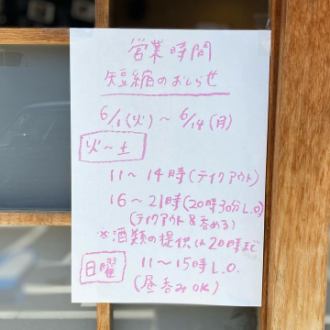 営業時間
短縮のおしらせ
6/1(火)～6/14(月)
火～土
11～14時(テイクアウト)
16～21時(20時30分L.O)
(テイクアウト&呑める)
※酒類の提供は20時まで
日曜 11～15時L.O.
(昼呑みOK)